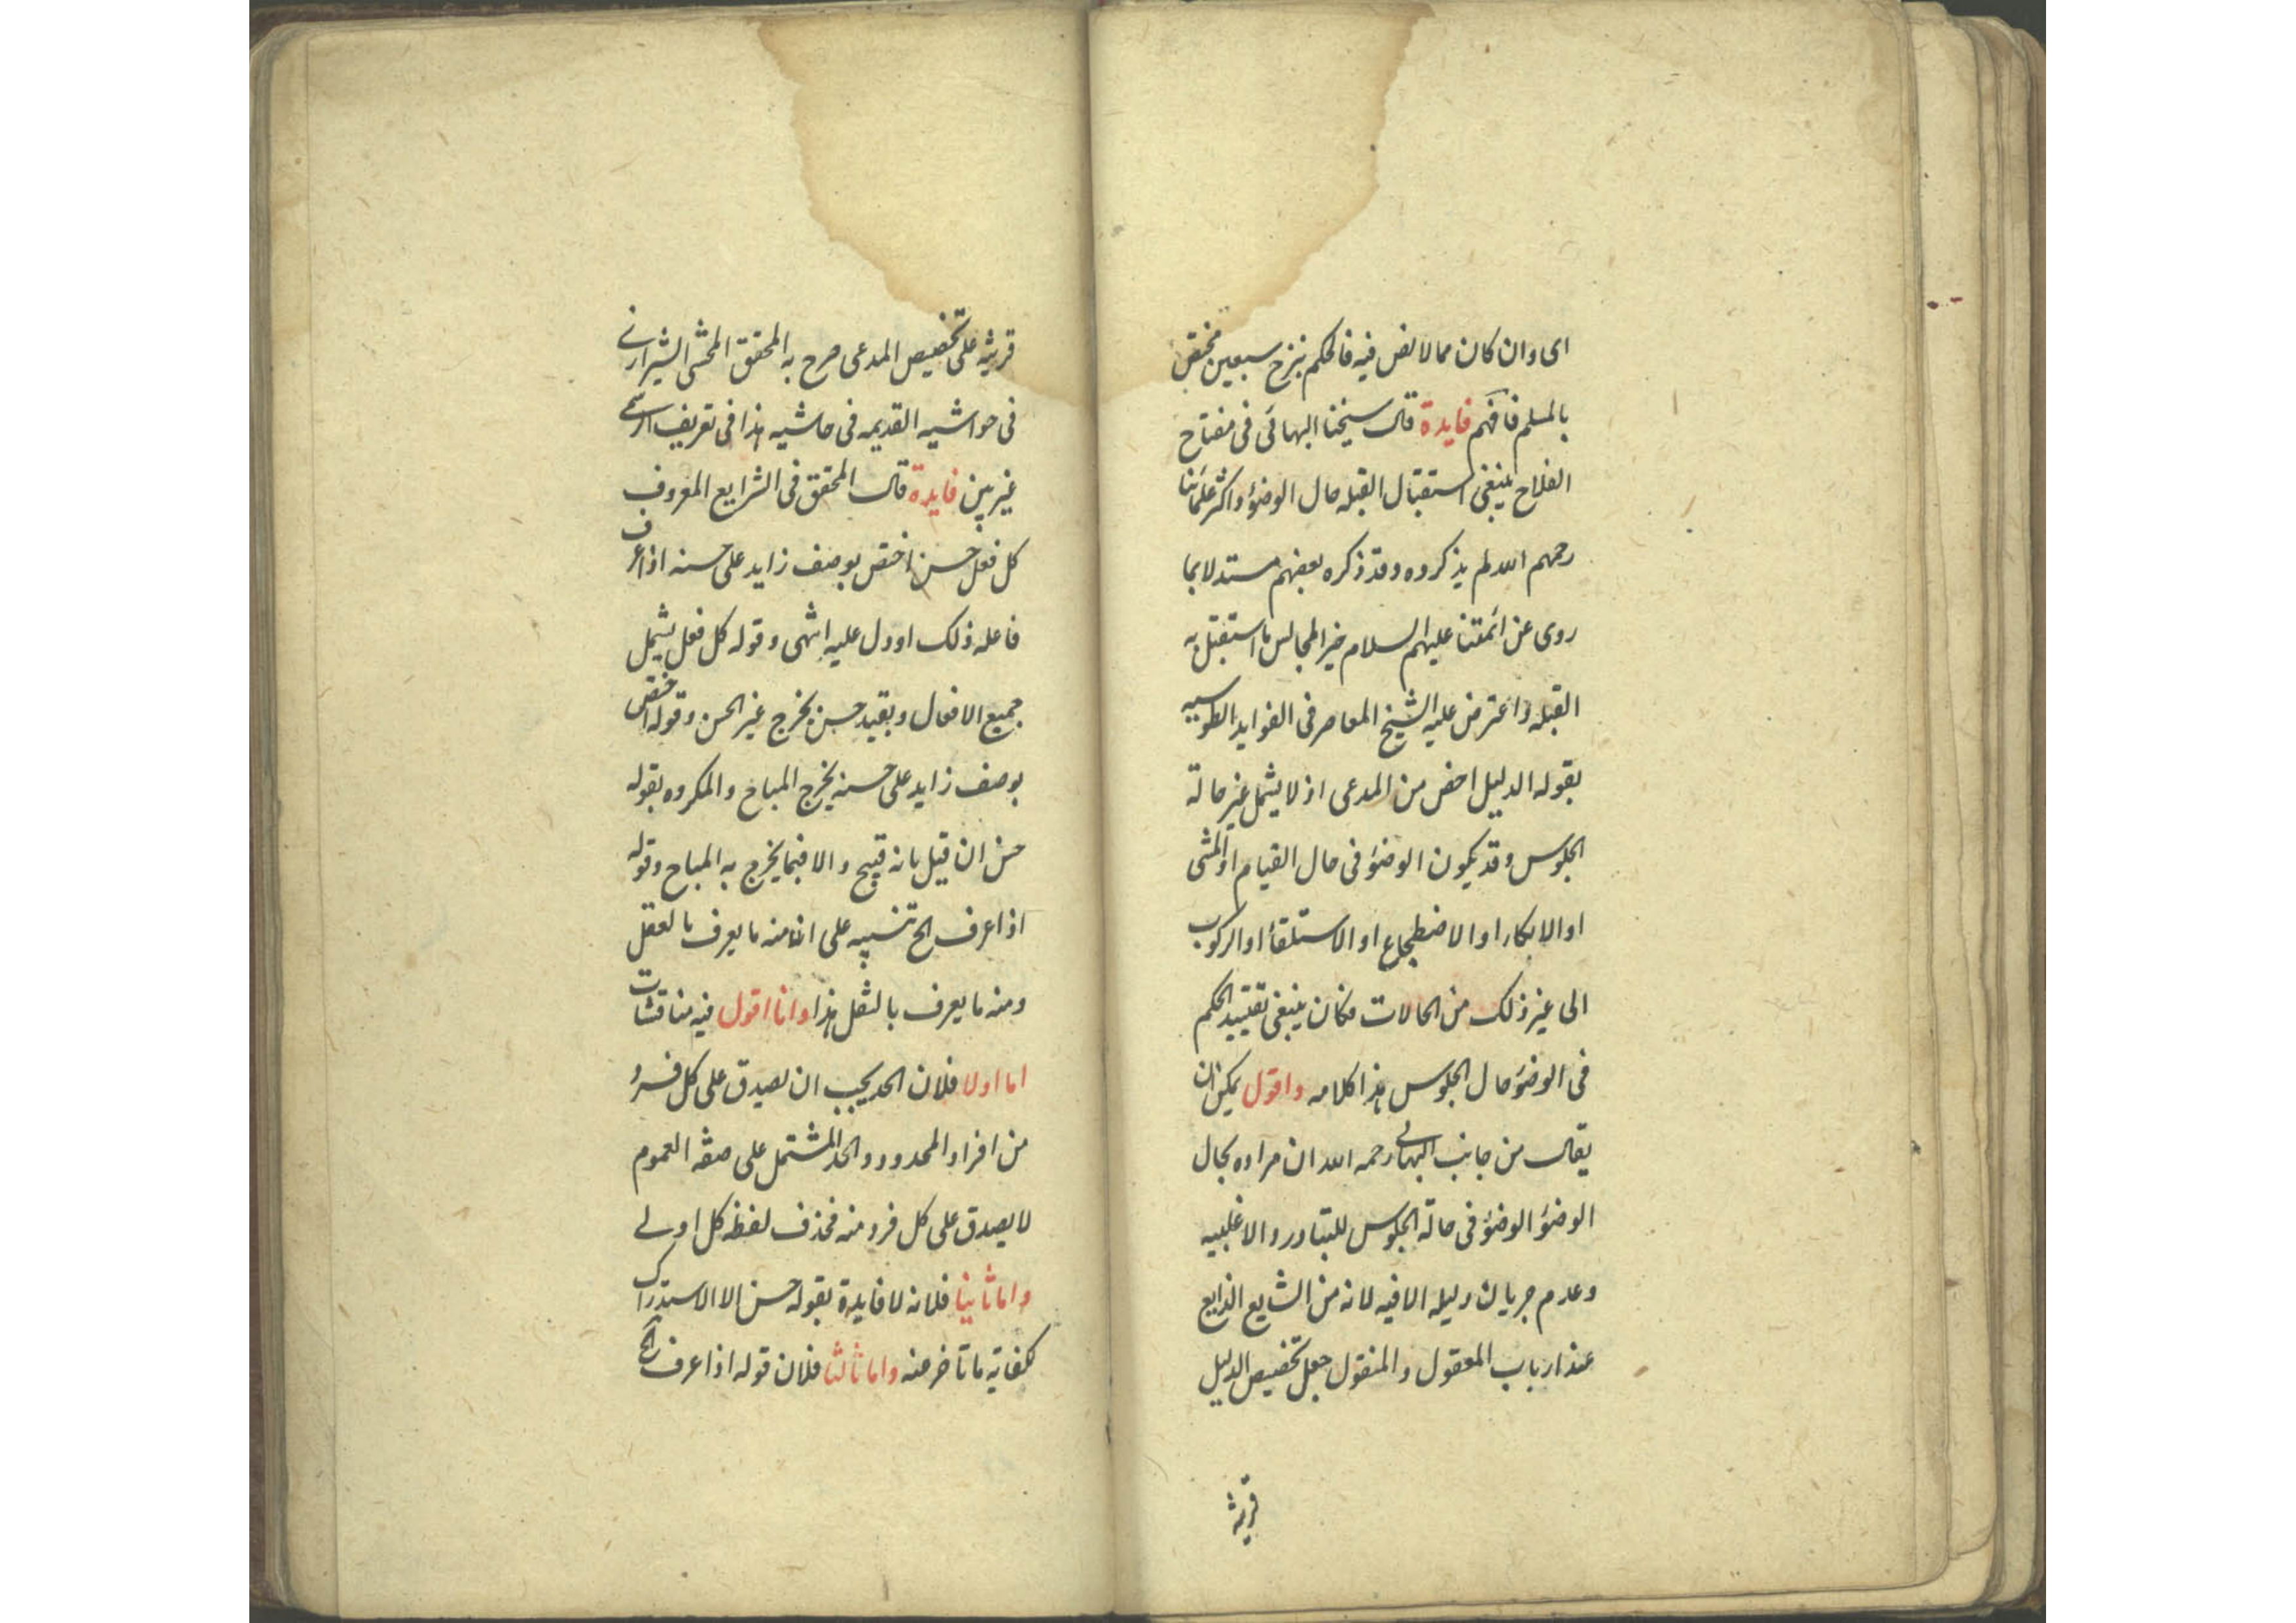 اى وان كان مما لا نص فيه فالحكم بنزح سبعين مختص
بالمسلم فافهم فايدة قال شيخنا البهائى فى مفتاح
الفلاح ينبغى استقبال القبله حال الوضؤ واكثر علمائنا
رحمهم الله لم يذكروه وقد ذكره بعضهم مستدلا بما
روى عن ائمتنا عليهم السلام خير المجالس ما استقبل به
القبله واعترض عليه الشيخ المعاصر فى الفوايد الطوسيه
بقوله الدليل اخص من المدعى اذ لا يشمل غير حالة
الجلوس وقد يكون الوضؤ فى حال القيام او المشى
او الاتكار او الاضطجاع او الاستلقأ او الركوب
الى غير ذلك من الحالات فكان ينبغى تقييد الحكم
فى الوضؤ حال الجلوس هذا كلامه واقول يمكن ان
يقال من جانب البهائى رحمه الله ان مراده بحال
الوضؤ الوضؤ فى حالة الجلوس للتبادر والاغلبيه
وعدم جريان دليله الا فيه لانه من الشايع الذايع
عند ارباب المعقول والمنقول جعل تخصيص الدليل
قرينة
قرينه على تخصيص المدعى صرح به المحقق المحشى الشيرازى
فى حواشيه القديمه فى حاشيه هذا فى تعريف الرسمى
غير بين فايدة قال المحقق فى الشرايع المعروف
كل فعل حسن اختص بوصف زايد على حسنه اذا عرف
فاعله ذلك او دل عليه انتهى وقوله كل فعل يشمل
جميع الافعال وبقيد حسن يخرج غير الحسن وقوله اختص
بوصف زايد على حسنه يخرج المباح والمكروه بقوله
حسن ان قيل بانه قبيح والا فبما يخرج به المباح وقوله
اذا عرف الخ تنبيه على ان منه ما يعرف بالعقل
ومنه ما يعرف بالنقل هذا وانا اقول فيه مناقشات
اما اولا فلان الحد يجب ان يصدق على كل فرد
من افراد المحدود والحد المشتمل على صفة العموم
لا يصدق على كل فرد منه فحذف لفظه كل اولى
واما ثانيا فلانه لا فايدة بقوله حسن الا الاستدراك
لكفاية ما تأخر عنه واما ثالثا فلان قوله اذا عرف الخ